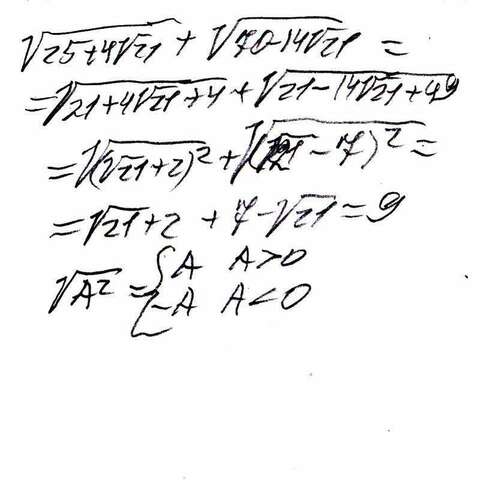 √(25+4√21) + √(70-14√21) =
= √(21+4√21+4) + √(21-14√21+49)
= √((√21+2)²) + √((√21-7)²) =
= √21+2 + 7-√21 = 9
√(A²) = { A A>0
-A A<0